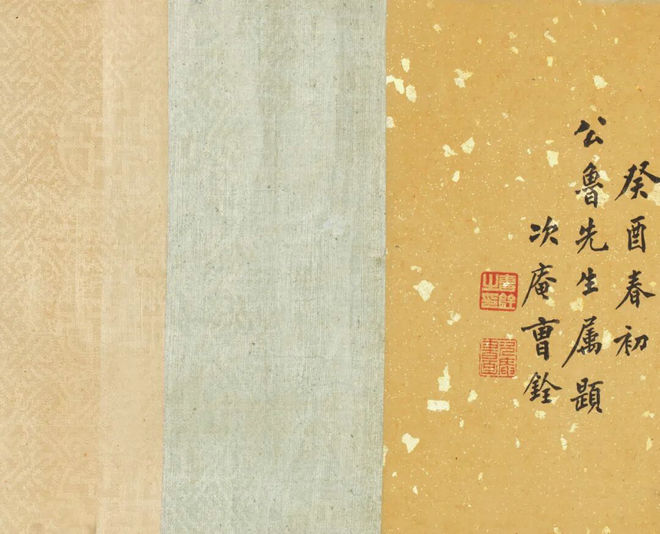 癸酉春初
公魯先生属題
次庵曹銓